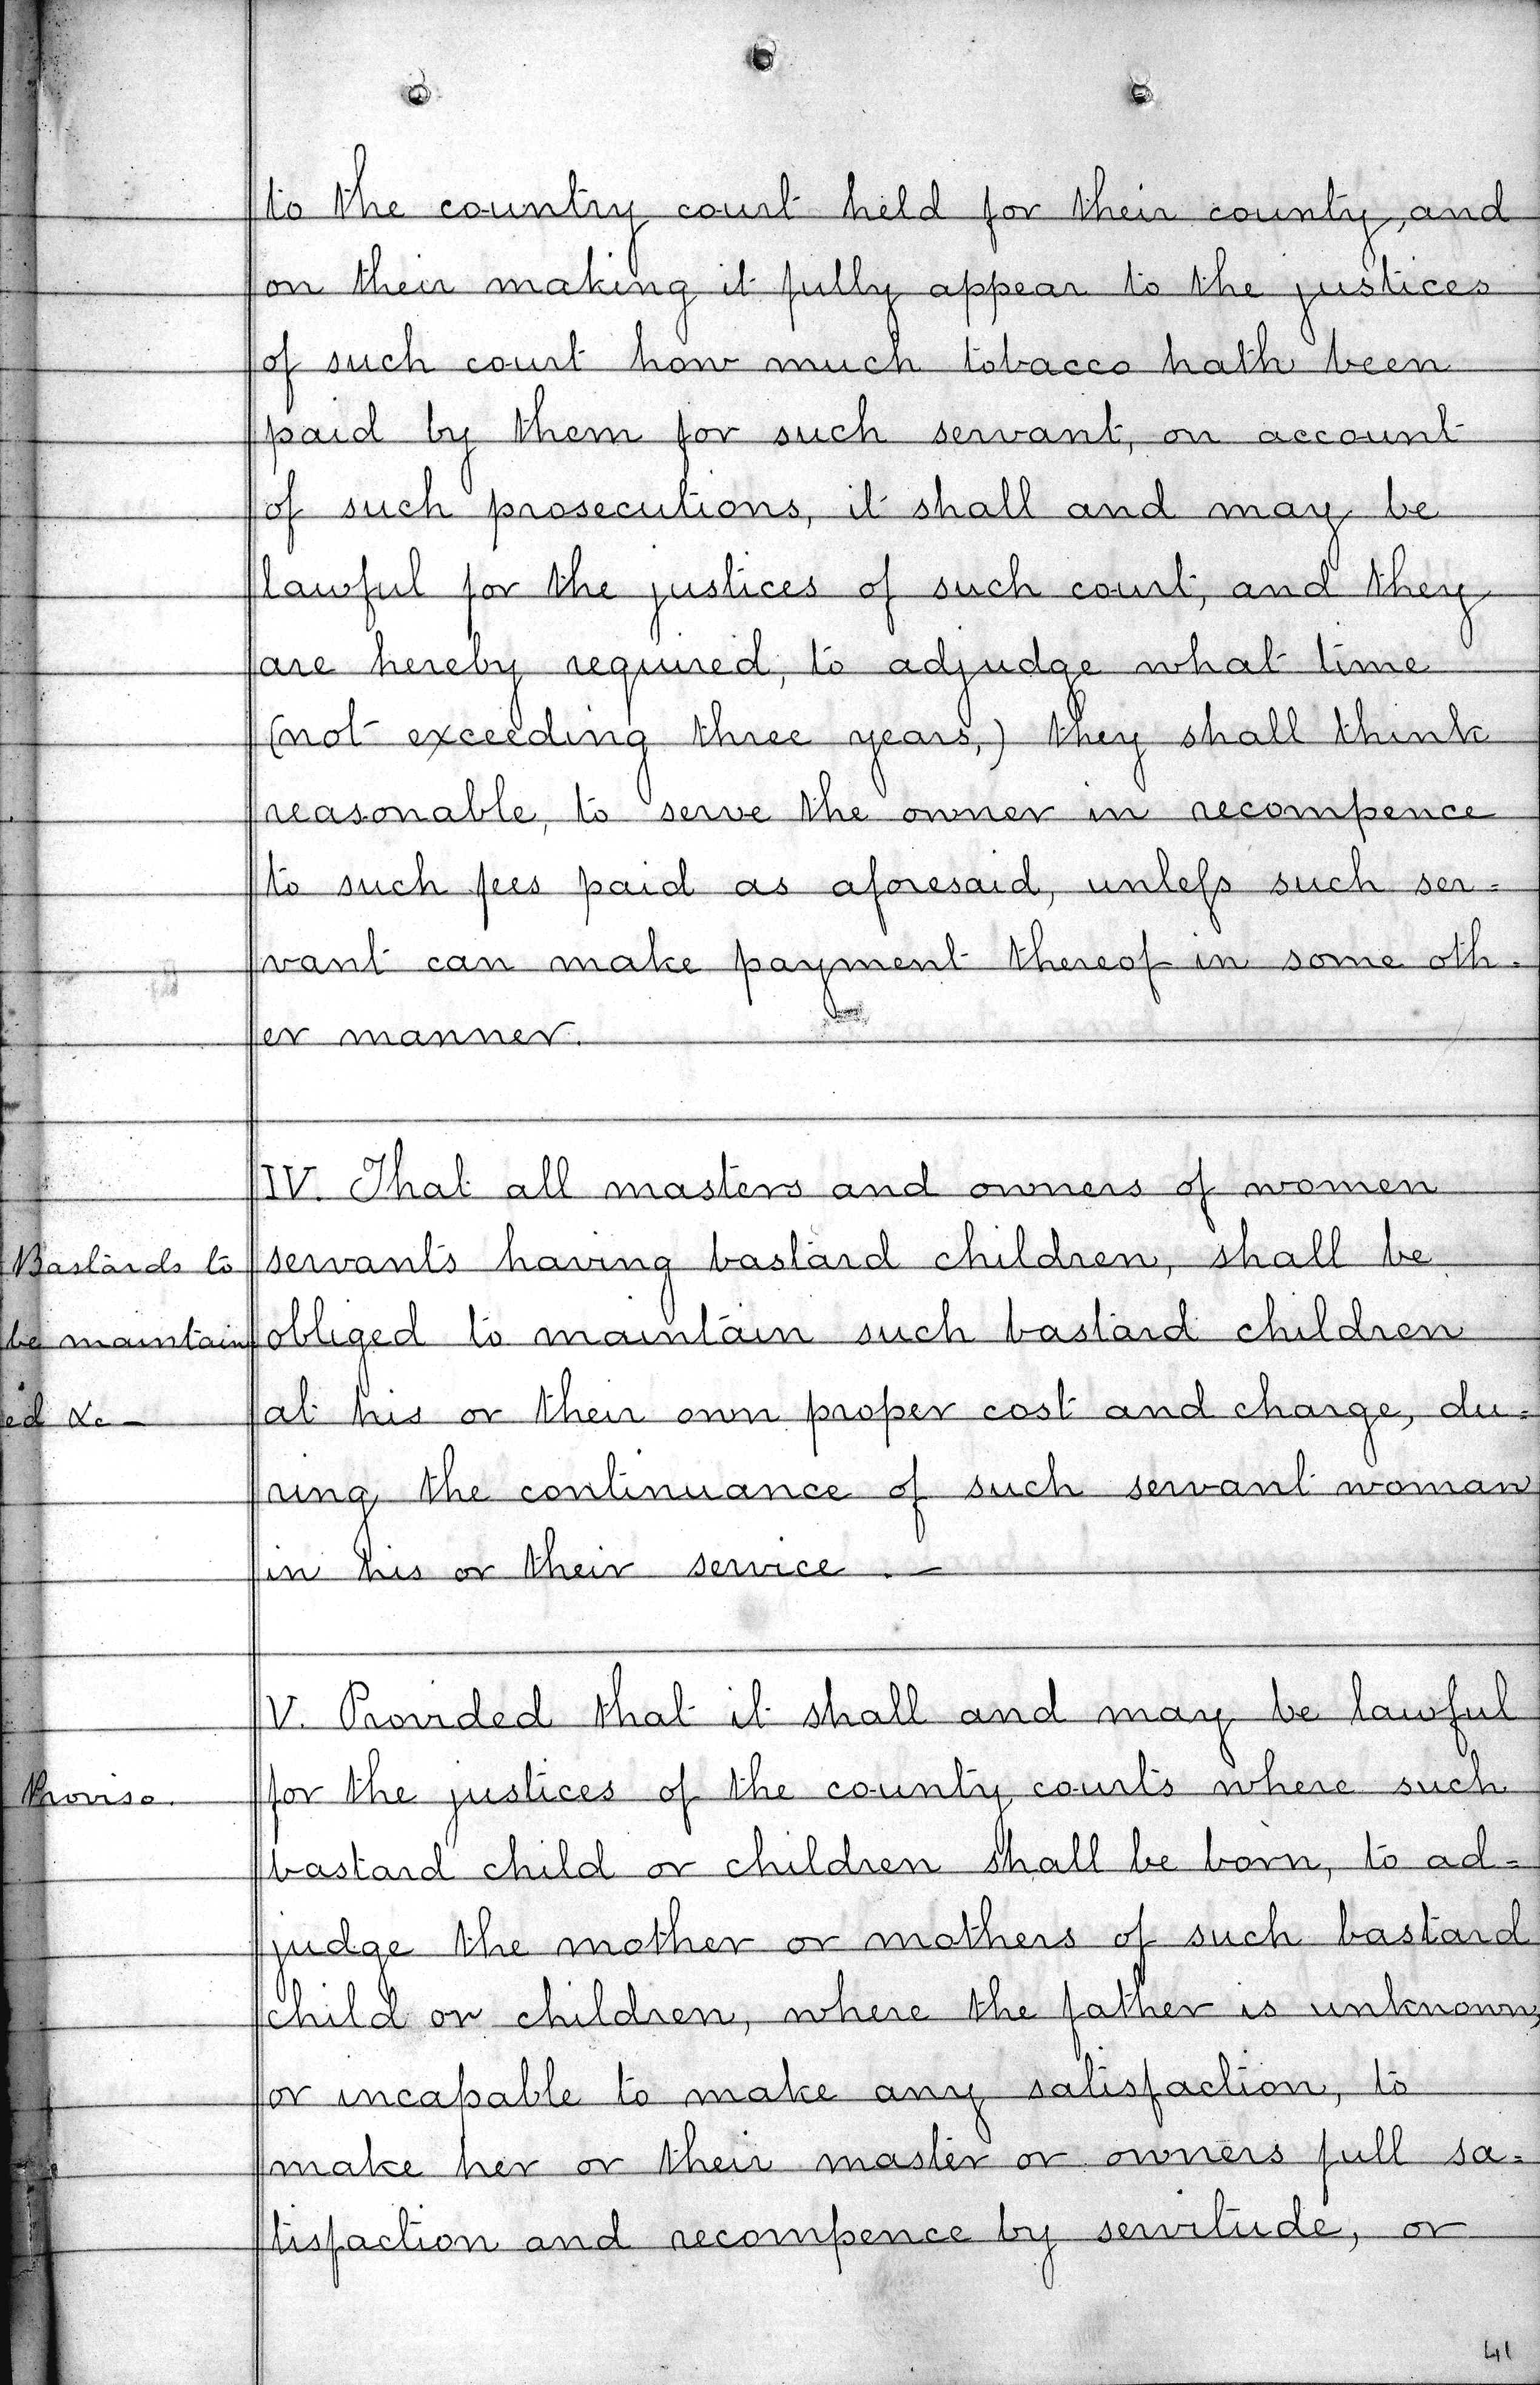 to the country court held for their county, and
on their making it fully appear to the justices
of such court how much tobacco hath been
paid by them for such servant, on account
of such prosecutions, it shall and may be
lawful for the justices of such court, and they
are hereby required, to adjudge what time
(not exceeding three years,) they shall think
reasonable, to serve the owner in recompence
to such fees paid as aforesaid, unleſs such ser=
vant can make payment thereof in some oth=
er manner.
IV. That all masters and owners of women
Bastards to
servants having bastard children, shall be
be maintain
obliged to maintain such bastard children
ed &c –
at his or their own proper cost and charge, du=
ring the continuance of such servant woman
in his or their service. –
V. Provided that it shall and may be lawful
Proviso.
for the justices of the county courts where such
bastard child or children shall be born, to ad=
judge the mother or mothers of such bastard
child or children, where the father is unknown,
or incapable to make any satisfaction, to
make her or their master or owners full sa=
tisfaction and recompence by servitude, or
41